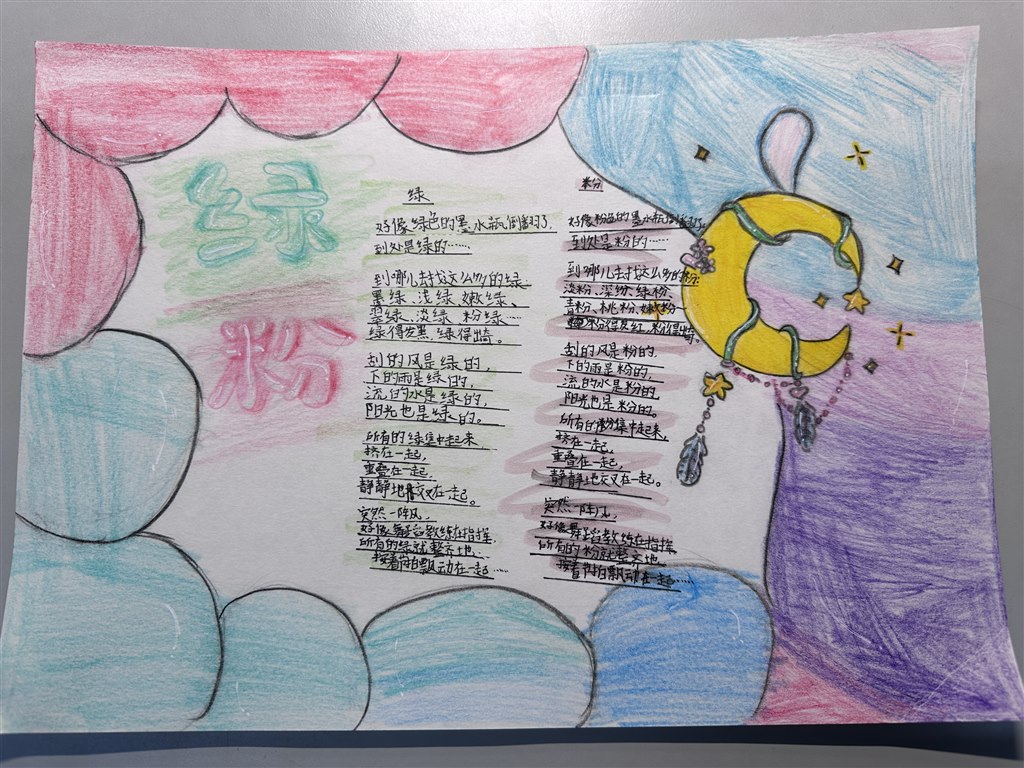 绿
粉
绿
好像绿色的墨水瓶倒翻了,
到处是绿的……
到哪儿去找这么多的绿
墨绿、浅绿、嫩绿、
翠绿、淡绿、粉绿……
绿得发黑、绿得出奇。
刮的风是绿的,
下的雨是绿的,
流的水是绿的,
阳光也是绿的。
所有的绿集中起来
挤在一起,
重叠在一起,
静静地交叉在一起。
突然一阵风,
好像舞蹈教练在指挥,
所有的绿就整齐地
按着节拍飘动在一起……
粉
好像粉色的墨水瓶倒翻了,
到处是粉的……
到哪儿去找这么多的粉:
淡粉、深粉、绿粉、
青粉、桃粉、嫩粉
粉得发红、粉得出奇。
刮的风是粉的,
下的雨是粉的,
流的水是粉的,
阳光也是粉的。
所有的粉集中起来,
挤在一起,
重叠在一起,
静静地交叉在一起。
突然一阵风,
好像舞蹈教练在指挥
所有的粉就整齐地
按着节拍飘动在一起……